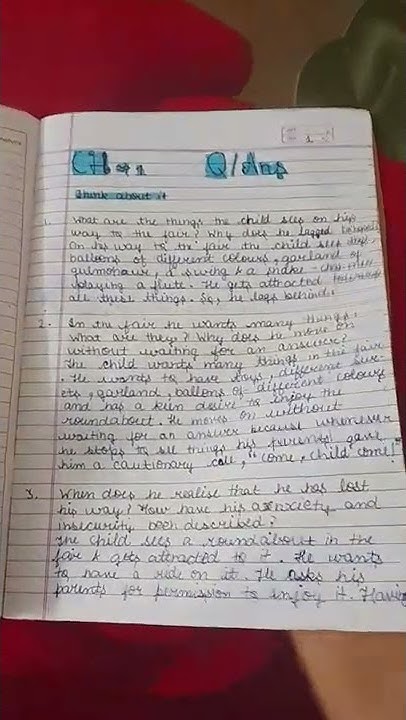 CH-1 Q/Ans
Think about it
1. What are the things the child sees on his
way to the fair? Why does he lagged
On his way to the fair the child sees
balloons of different colours, garland of
gulmohaur, a swing & a snake-
playing a flute. He gets attracted
all these things. So, he lags behind.
2. In the fair he wants many things.
What are they? Why does he move on
without waiting for an answer?
The child wants many things in the fair
. He wants to have toys, different swe-
ets, garland, ballons of different colours
and has a keen desire to enjoy the
roundabout. He moves on without
waiting for an answer because whenever
he stops to see things his parents gave
him a cautionary call, "come, child come!"
3. When does he realise that he has lost
his way? How have his anxiety and
insecurity been described?
The child sees a roundabout in the
fair & gets attracted to it. He wants
to have a ride on it. He asks his
parents for permission to enjoy it. Having